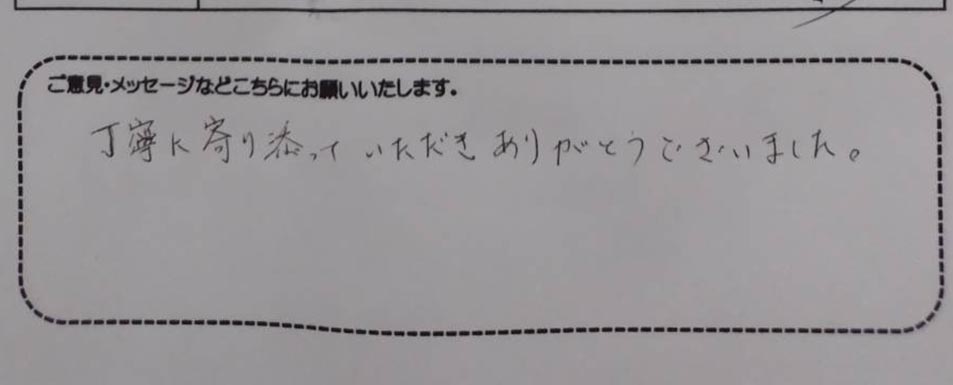 ご意見・メッセージなどこちらにお願いいたします。
丁寧に寄り添っていただきありがとうございました。